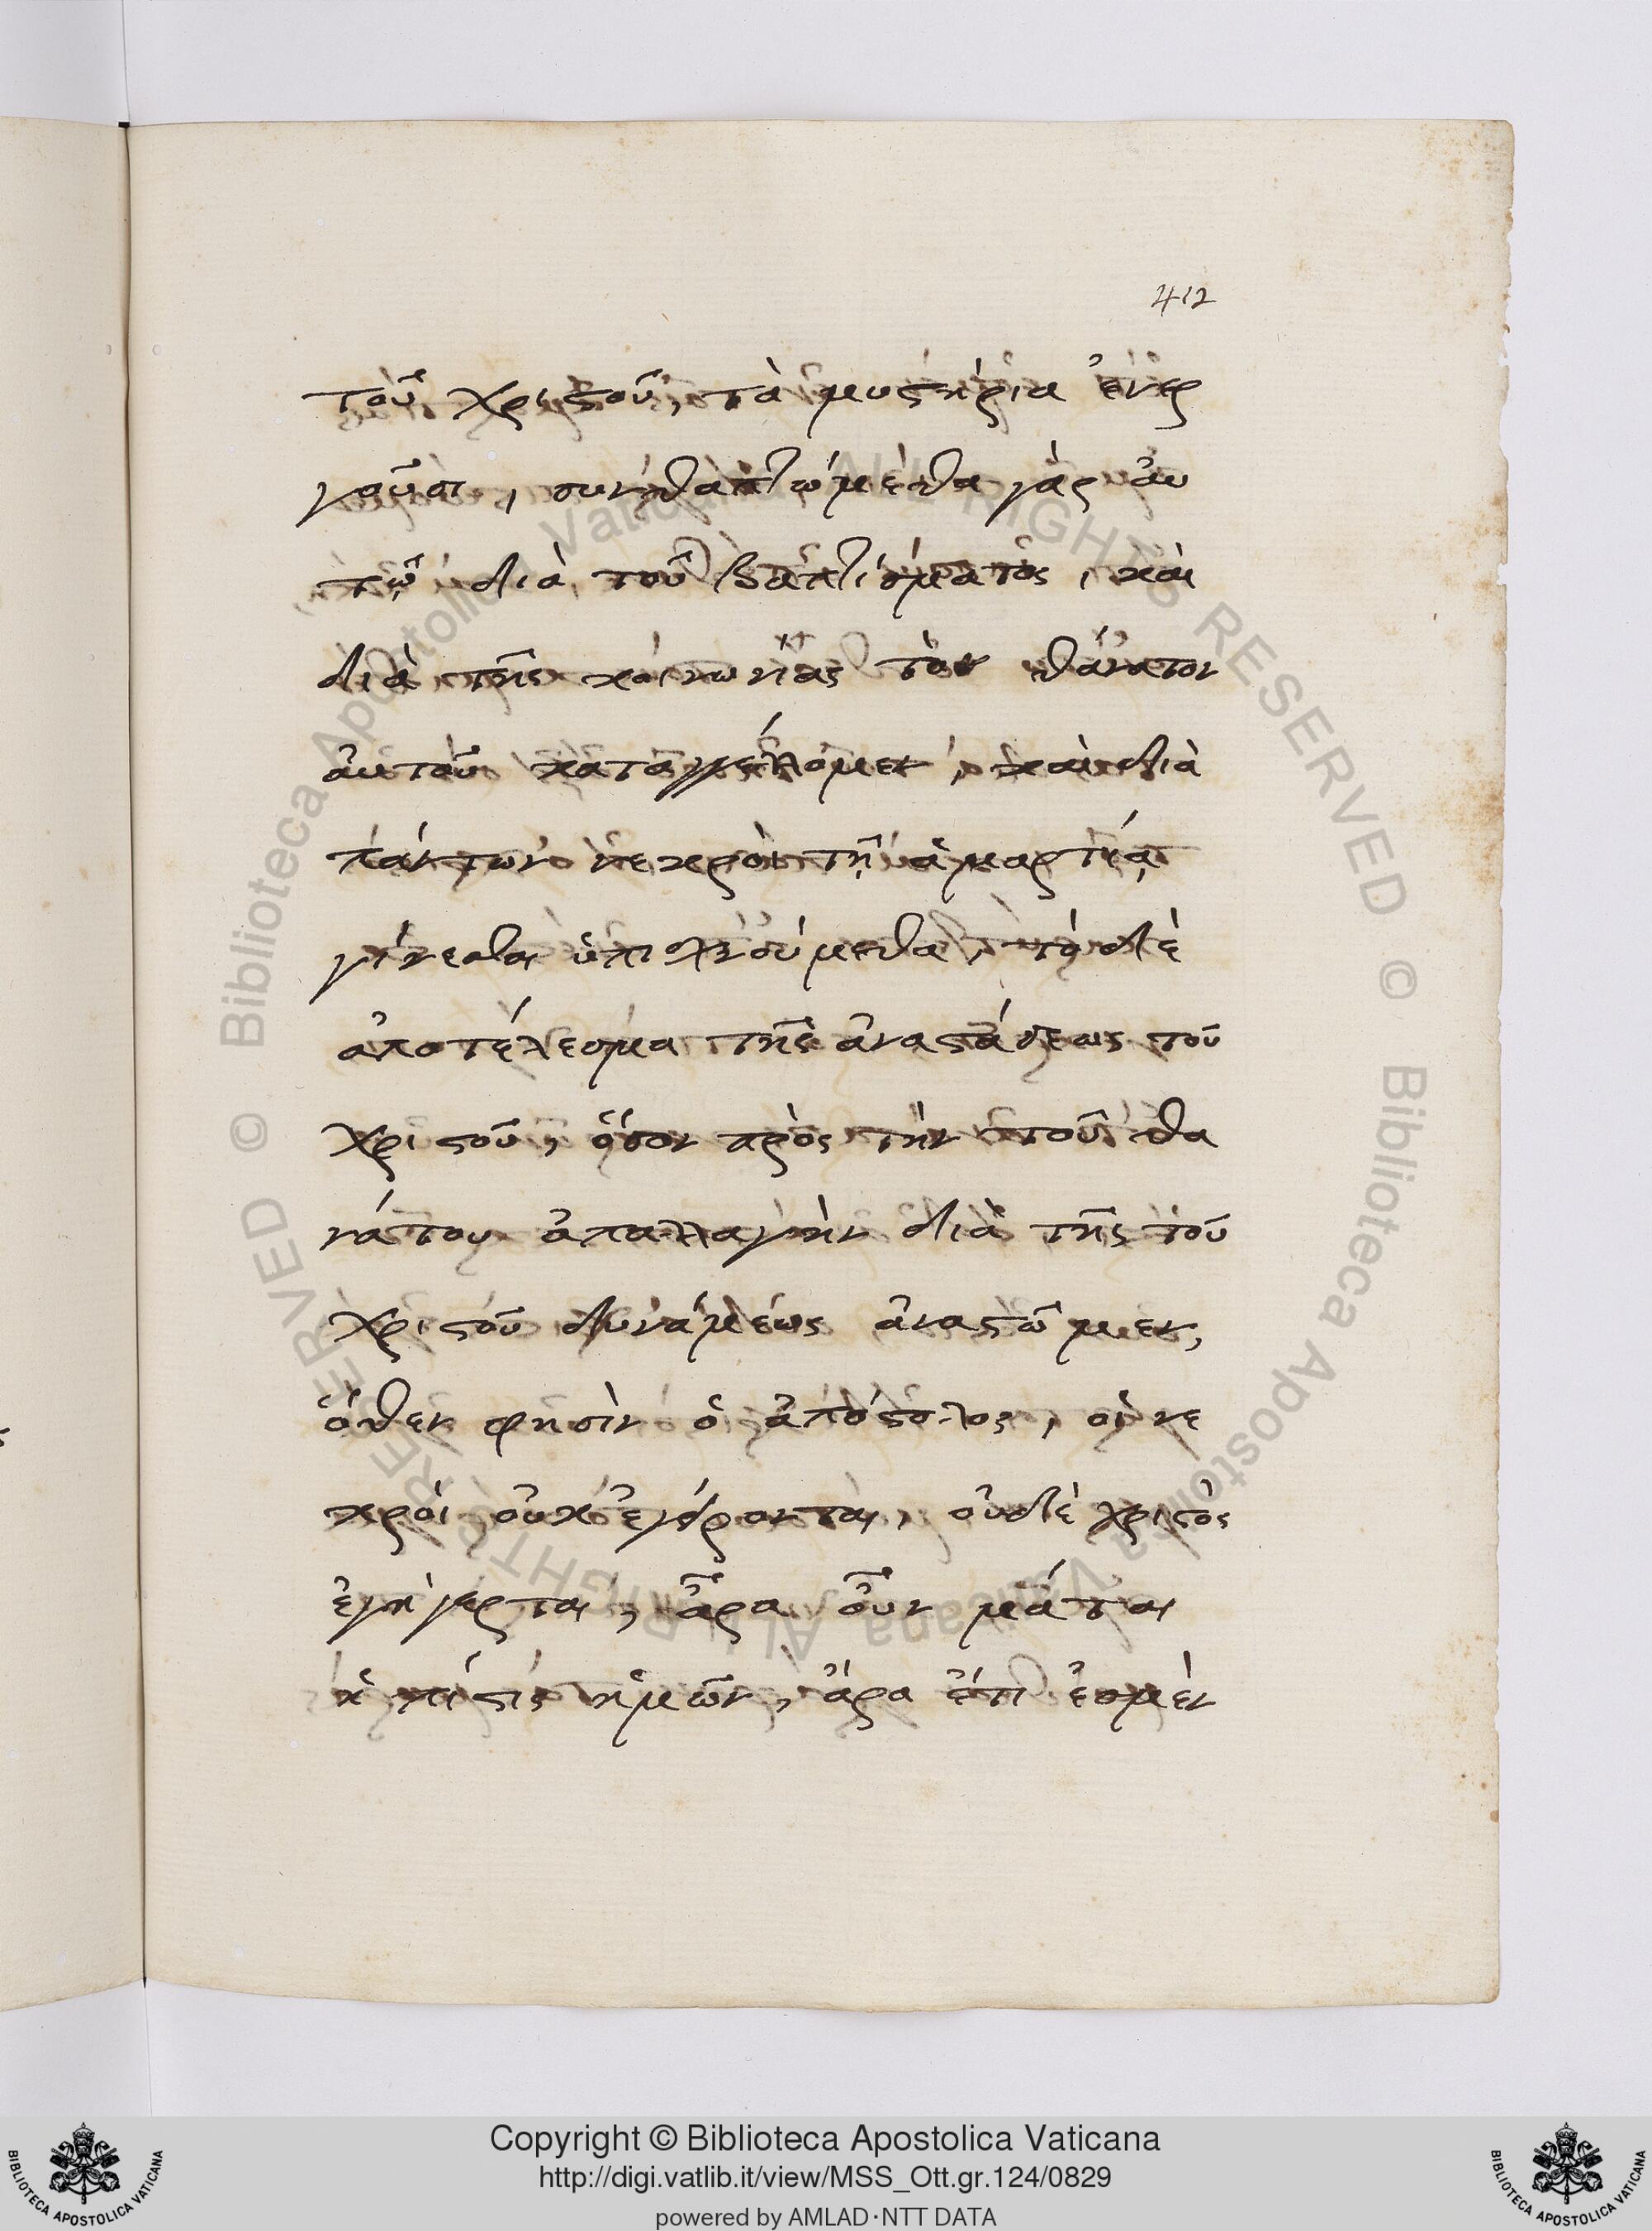 412
τοῦ χριστοῦ, τὰ μυστήρια ἐνερ
γοῦσι, συνθαπτώμεθα γὰρ αὐ
τῷ διὰ τοῦ βαπτίσματος, καὶ
διὰ τῆς κοινωνίας τὸν θάνατον
αὐτοῦ καταγγέλομεν, καὶ διὰ
πάντων νεκροὶ τῇ ἁμαρτίᾳ
γίνεσθαι ὑπισχνούμεθα, τὸ δὲ
ἀποτέλεσμα τῆς ἀναστάσεως τοῦ
χριστοῦ, ὅσον πρὸς τὴν τοῦ θα
νάτου ἀπαλλαγὴν διὰ τῆς τοῦ
χριστοῦ δυνάμεως ἀναστῶμεν,
ὅθεν φησὶν ὁ ἀπόστολος, οἱ νε
κροὶ οὐκ ἐγείρονται, οὐδὲ χριστὸς
ἐγήγερται, ἆρα οὖν μάται
ἡ πίστις ἡμῶν, ἄρα ἔτι ἐσμὲν
Copyright © Biblioteca Apostolica Vaticana
http://digi.vatlib.it/view/MSS_Ott.gr.124/0829
powered by AMLAD·NTT DATA
BIBLIOTECA APOSTOLICA VATICANA
BIBLIOTECA APOSTOLICA VATICANA
© Biblioteca Apostolica Vaticana ALL RIGHTS RESERVED
© Biblioteca Apostolica Vaticana ALL RIGHTS RESERVED